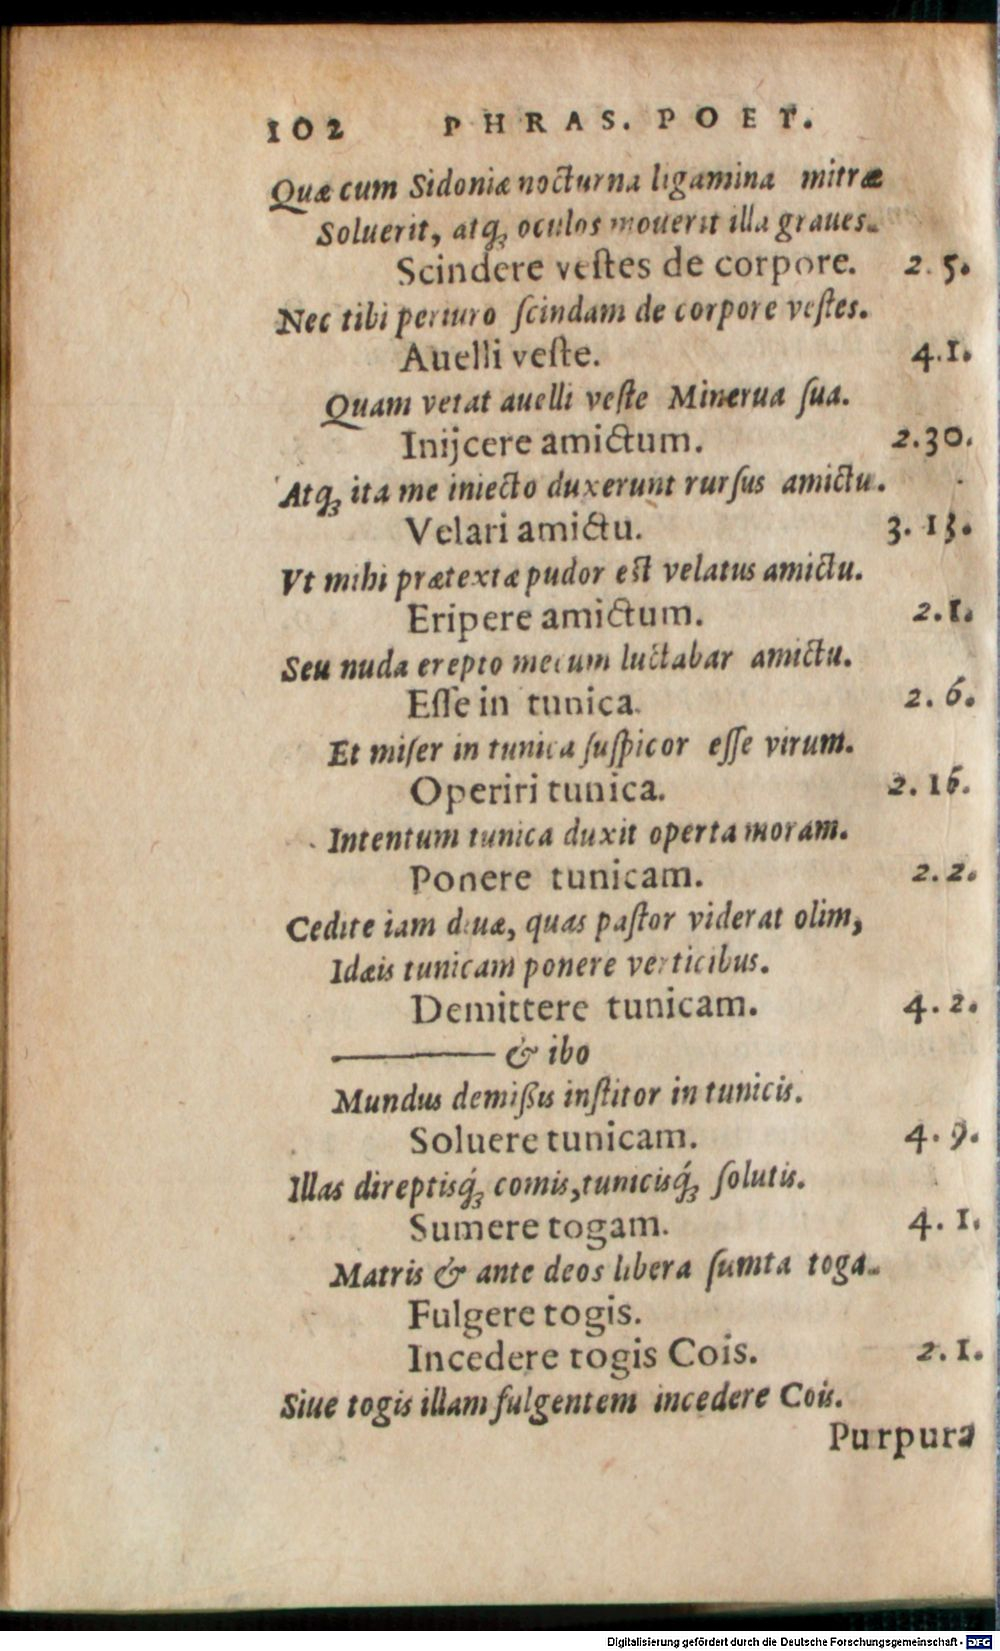 102 PHRAS. POET.
Quæ cum Sidoniæ nocturna ligamina mitræ
Soluerit, atqꝫ oculos mouerit illa graues.
Scindere vestes de corpore. 2. 5.
Nec tibi periuro ſcindam de corpore veſtes.
Auelli veſte. 4.1.
Quam vetat auelli veſte Minerua ſua.
Inijcere amictum. 2.30.
Atqꝫ ita me iniecto duxerunt rurſus amictu.
Velari amictu. 3. 13.
Vt mihi prætextæ pudor eſt velatus amictu.
Eripere amictum. 2.1.
Seu nuda erepto mecum luctabar amictu.
Eſſe in tunica. 2. 6.
Et miſer in tunica ſuſpicor eſſe virum.
Operiri tunica. 2. 16.
Intentum tunica duxit operta moram.
Ponere tunicam. 2.2.
Cedite iam diuæ, quas paſtor viderat olim,
Idæis tunicam ponere verticibus.
Demittere tunicam. 4. 2.
——— & ibo
Mundus demißus inſtitor in tunicis.
Soluere tunicam. 4. 9.
Illas direptisq́ꝫ comis, tunicisq́ꝫ ſolutis.
Sumere togam. 4. 1.
Matris & ante deos libera ſumta toga.
Fulgere togis.
Incedere togis Cois. 2. 1.
Siue togis illam fulgentem incedere Cois.
Purpura
Digitalisierung gefördert durch die Deutsche Forschungsgemeinschaft - DFG